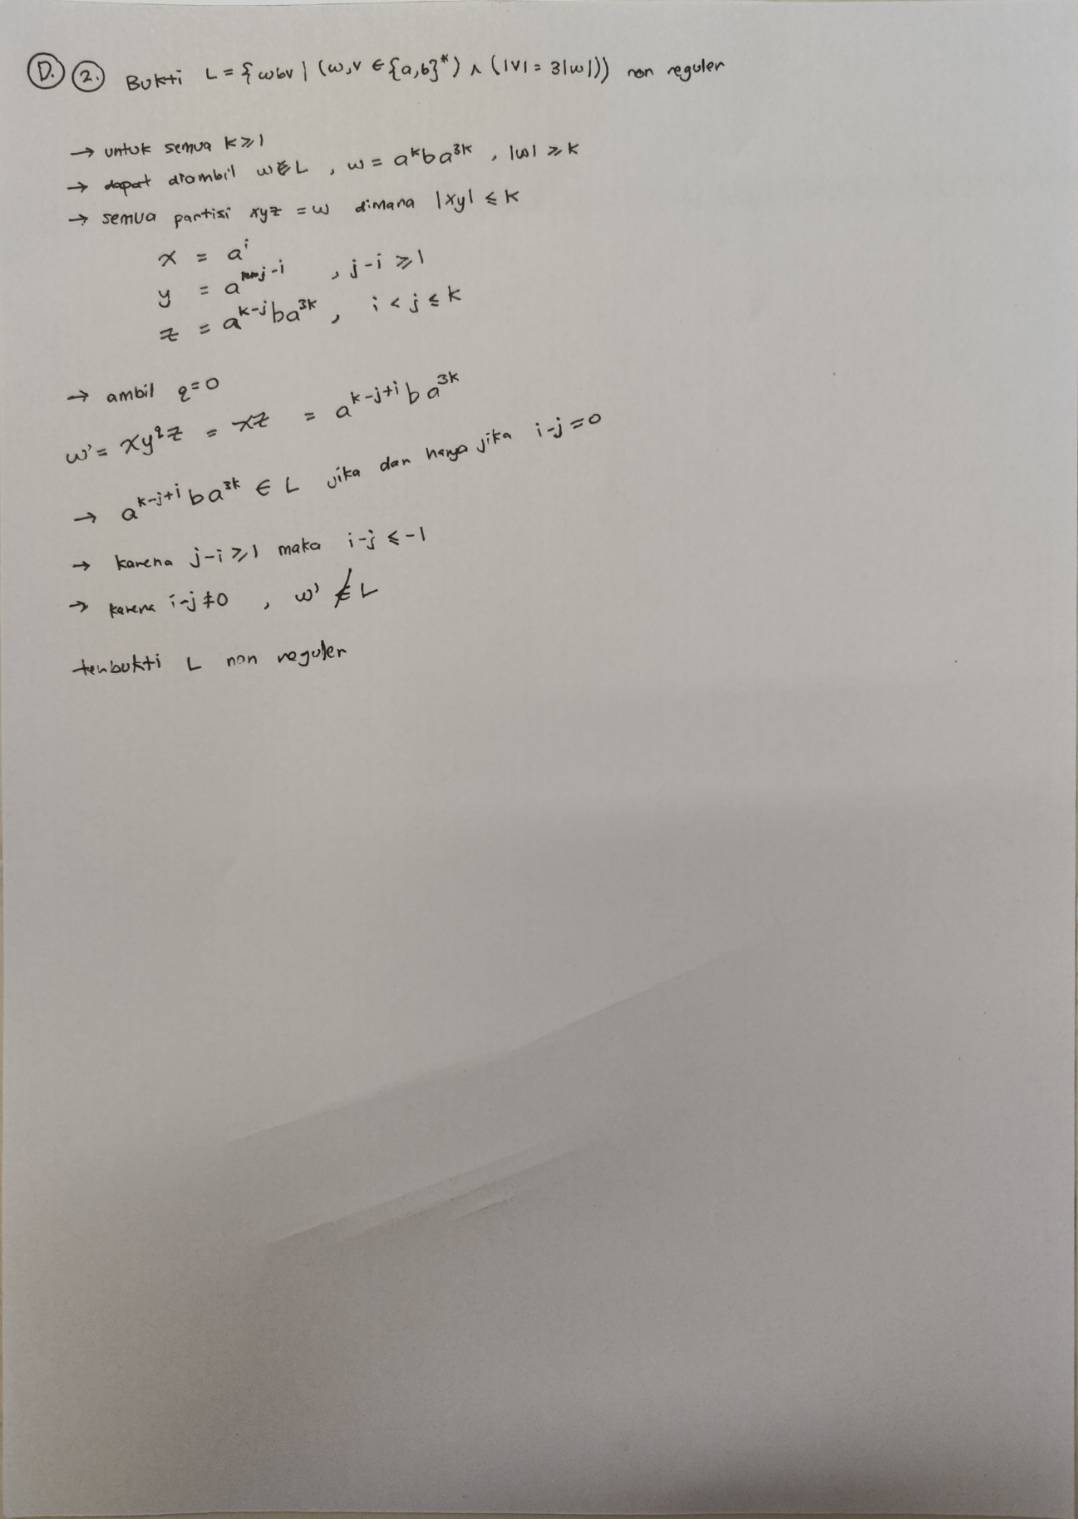 D. 2. Bukti L = { wbv | (w,v ∈ {a,b}*) ∧ (|v| = 3|w|)) non reguler
→ untuk semua k ≥ 1
→ dapat diambil w ∈ L , w = a^k b a^3k , |w| ≥ k
→ semua partisi xyz = w dimana |xy| ≤ k
x = a^i
y = a^j-i , j-i ≥ 1
z = a^k-j b a^3k , i < j ≤ k
→ ambil q=0
w' = xy^qz = xz = a^k-j+i b a^3k
→ a^k-j+i b a^3k ∈ L jika dan hanya jika i-j = 0
→ karena j-i ≥ 1 maka i-j ≤ -1
→ karena i-j ≠ 0 , w' ∉ L
terbukti L non reguler